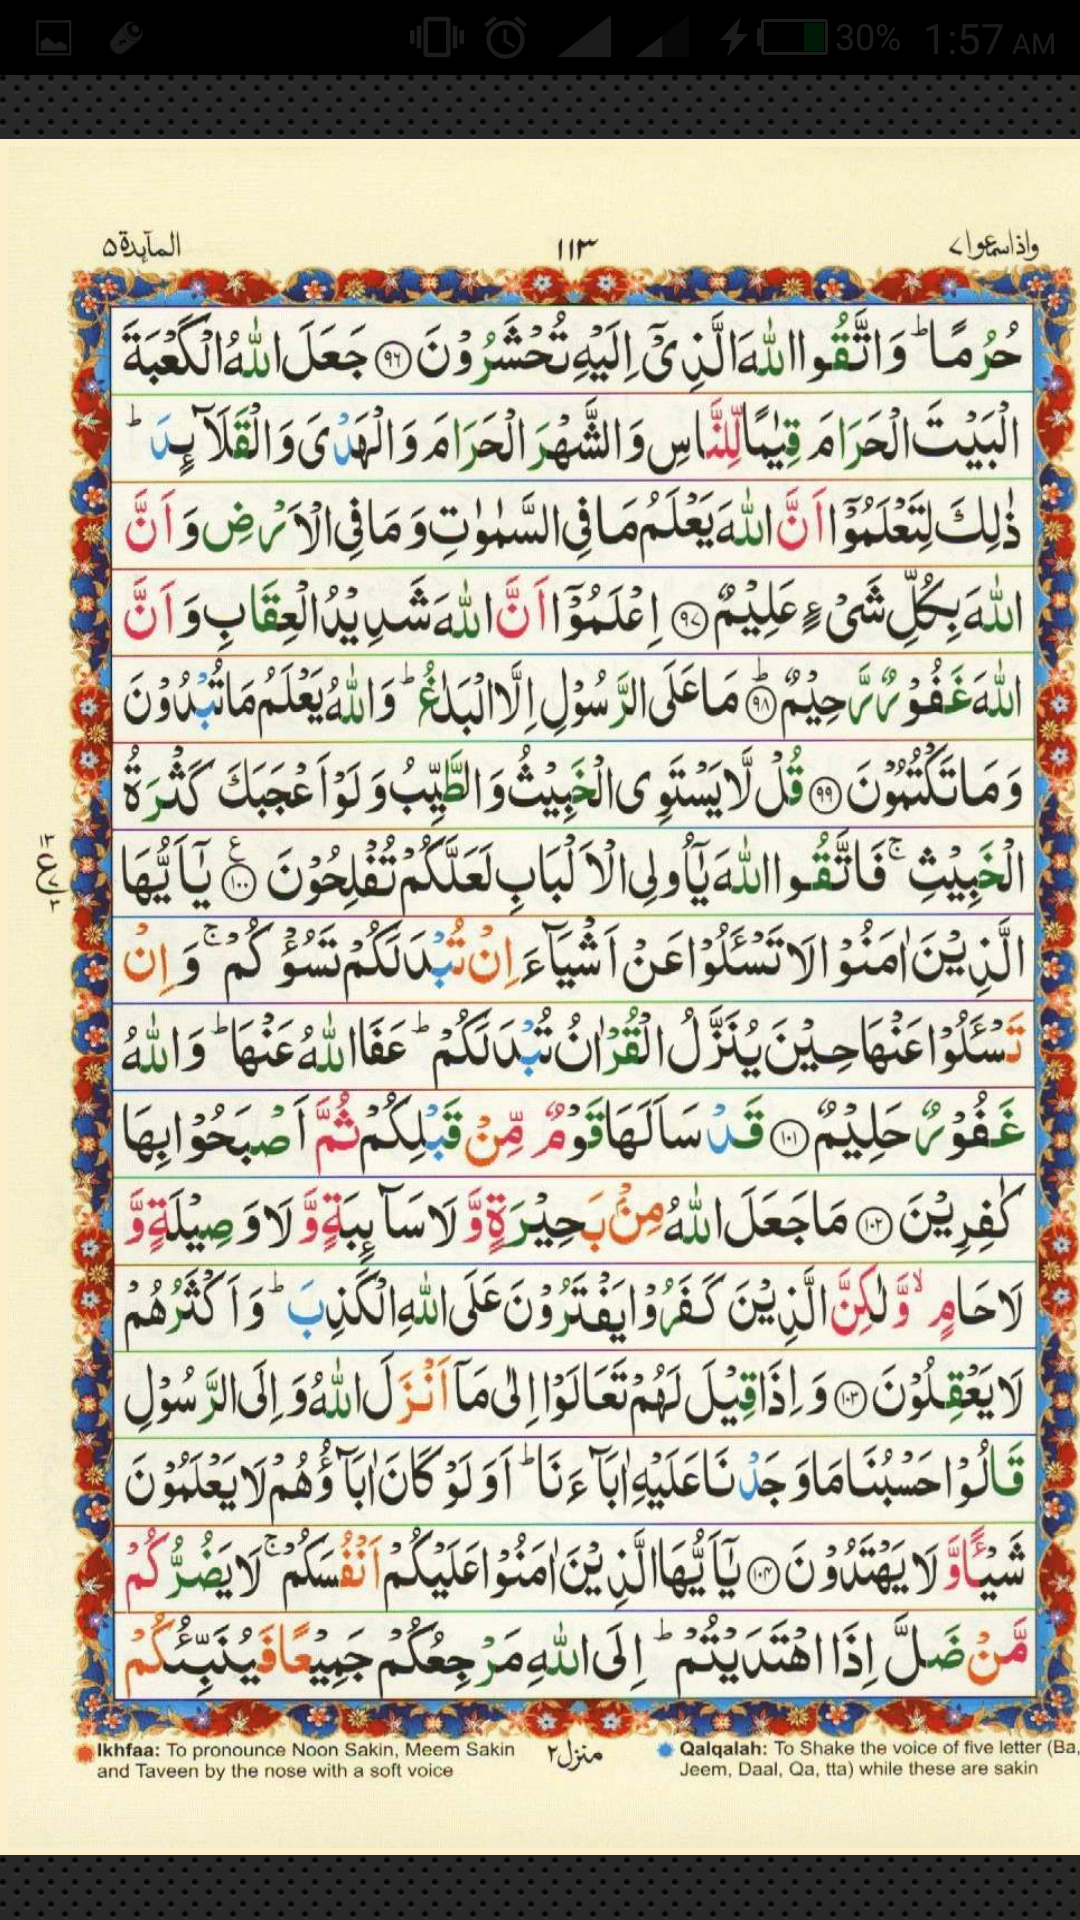 30% 1:57 AM
المآىِٕدة ۵ ۱۱۳ واذاسمعوا ۷
حُرُمًا ؕ وَاتَّقُوا اللّٰهَ الَّذِیْۤ اِلَیْهِ تُحْشَرُوْنَ ﴿۹۶﴾ جَعَلَ اللّٰهُ الْكَعْبَةَ
الْبَیْتَ الْحَرَامَ قِیٰمًا لِّلنَّاسِ وَالشَّهْرَ الْحَرَامَ وَالْهَدْیَ وَالْقَلَآىِٕدَ ؕ
ذٰلِكَ لِتَعْلَمُوْۤا اَنَّ اللّٰهَ یَعْلَمُ مَا فِی السَّمٰوٰتِ وَمَا فِی الْاَرْضِ وَاَنَّ
اللّٰهَ بِكُلِّ شَیْءٍ عَلِیْمٌ ﴿۹۷﴾ اِعْلَمُوْۤا اَنَّ اللّٰهَ شَدِیْدُ الْعِقَابِ وَاَنَّ
اللّٰهَ غَفُوْرٌ رَّحِیْمٌ ﴿۹۸﴾ؕ مَا عَلَی الرَّسُوْلِ اِلَّا الْبَلٰغُ ؕ وَاللّٰهُ یَعْلَمُ مَا تُبْدُوْنَ
وَمَا تَكْتُمُوْنَ ﴿۹۹﴾ قُلْ لَّا یَسْتَوِی الْخَبِیْثُ وَالطَّیِّبُ وَلَوْ اَعْجَبَكَ كَثْرَةُ
الْخَبِیْثِ ۚ فَاتَّقُوا اللّٰهَ یٰۤاُولِی الْاَلْبَابِ لَعَلَّكُمْ تُفْلِحُوْنَ ﴿۱۰۰﴾ یٰۤاَیُّهَا
۱۳ ع ۷ ۳
الَّذِیْنَ اٰمَنُوْا لَا تَسْـَٔلُوْا عَنْ اَشْیَآءَ اِنْ تُبْدَ لَكُمْ تَسُؤْكُمْ ۚ وَاِنْ
تَسْـَٔلُوْا عَنْهَا حِیْنَ یُنَزَّلُ الْقُرْاٰنُ تُبْدَ لَكُمْ ؕ عَفَا اللّٰهُ عَنْهَا ؕ وَاللّٰهُ
غَفُوْرٌ حَلِیْمٌ ﴿۱۰۱﴾ قَدْ سَاَلَهَا قَوْمٌ مِّنْ قَبْلِكُمْ ثُمَّ اَصْبَحُوْا بِهَا
كٰفِرِیْنَ ﴿۱۰۲﴾ مَا جَعَلَ اللّٰهُ مِنْۢ بَحِیْرَةٍ وَّلَا سَآىِٕبَةٍ وَّلَا وَصِیْلَةٍ وَّ
لَا حَامٍ ۙ وَّلٰكِنَّ الَّذِیْنَ كَفَرُوْا یَفْتَرُوْنَ عَلَی اللّٰهِ الْكَذِبَ ؕ وَاَكْثَرُهُمْ
لَا یَعْقِلُوْنَ ﴿۱۰۳﴾ وَاِذَا قِیْلَ لَهُمْ تَعَالَوْا اِلٰی مَاۤ اَنْزَلَ اللّٰهُ وَاِلَی الرَّسُوْلِ
قَالُوْا حَسْبُنَا مَا وَجَدْنَا عَلَیْهِ اٰبَآءَنَا ؕ اَوَلَوْ كَانَ اٰبَآؤُهُمْ لَا یَعْلَمُوْنَ
شَیْـًٔا وَّلَا یَهْتَدُوْنَ ﴿۱۰۴﴾ یٰۤاَیُّهَا الَّذِیْنَ اٰمَنُوْا عَلَیْكُمْ اَنْفُسَكُمْ ۚ لَا یَضُرُّكُمْ
مَّنْ ضَلَّ اِذَا اهْتَدَیْتُمْ ؕ اِلَی اللّٰهِ مَرْجِعُكُمْ جَمِیْعًا فَیُنَبِّئُكُمْ
Ikhfaa: To pronounce Noon Sakin, Meem Sakin منزل ۲ Qalqalah: To Shake the voice of five letter (Ba,
and Taveen by the nose with a soft voice Jeem, Daal, Qa, tta) while these are sakin